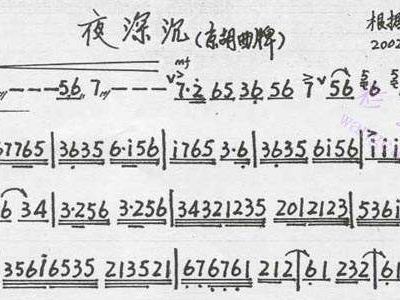 夜深沉(京胡曲牌) 根据
2002
mf
----56 7----7·2 65 36 56 7 v 56 6
67765|3635 6·i56|i765 3·6|3635 6i56|iii
6 34|3·256 3·256|34321235 2012123|536i
356i6535 213521|676761 212|61 232|61